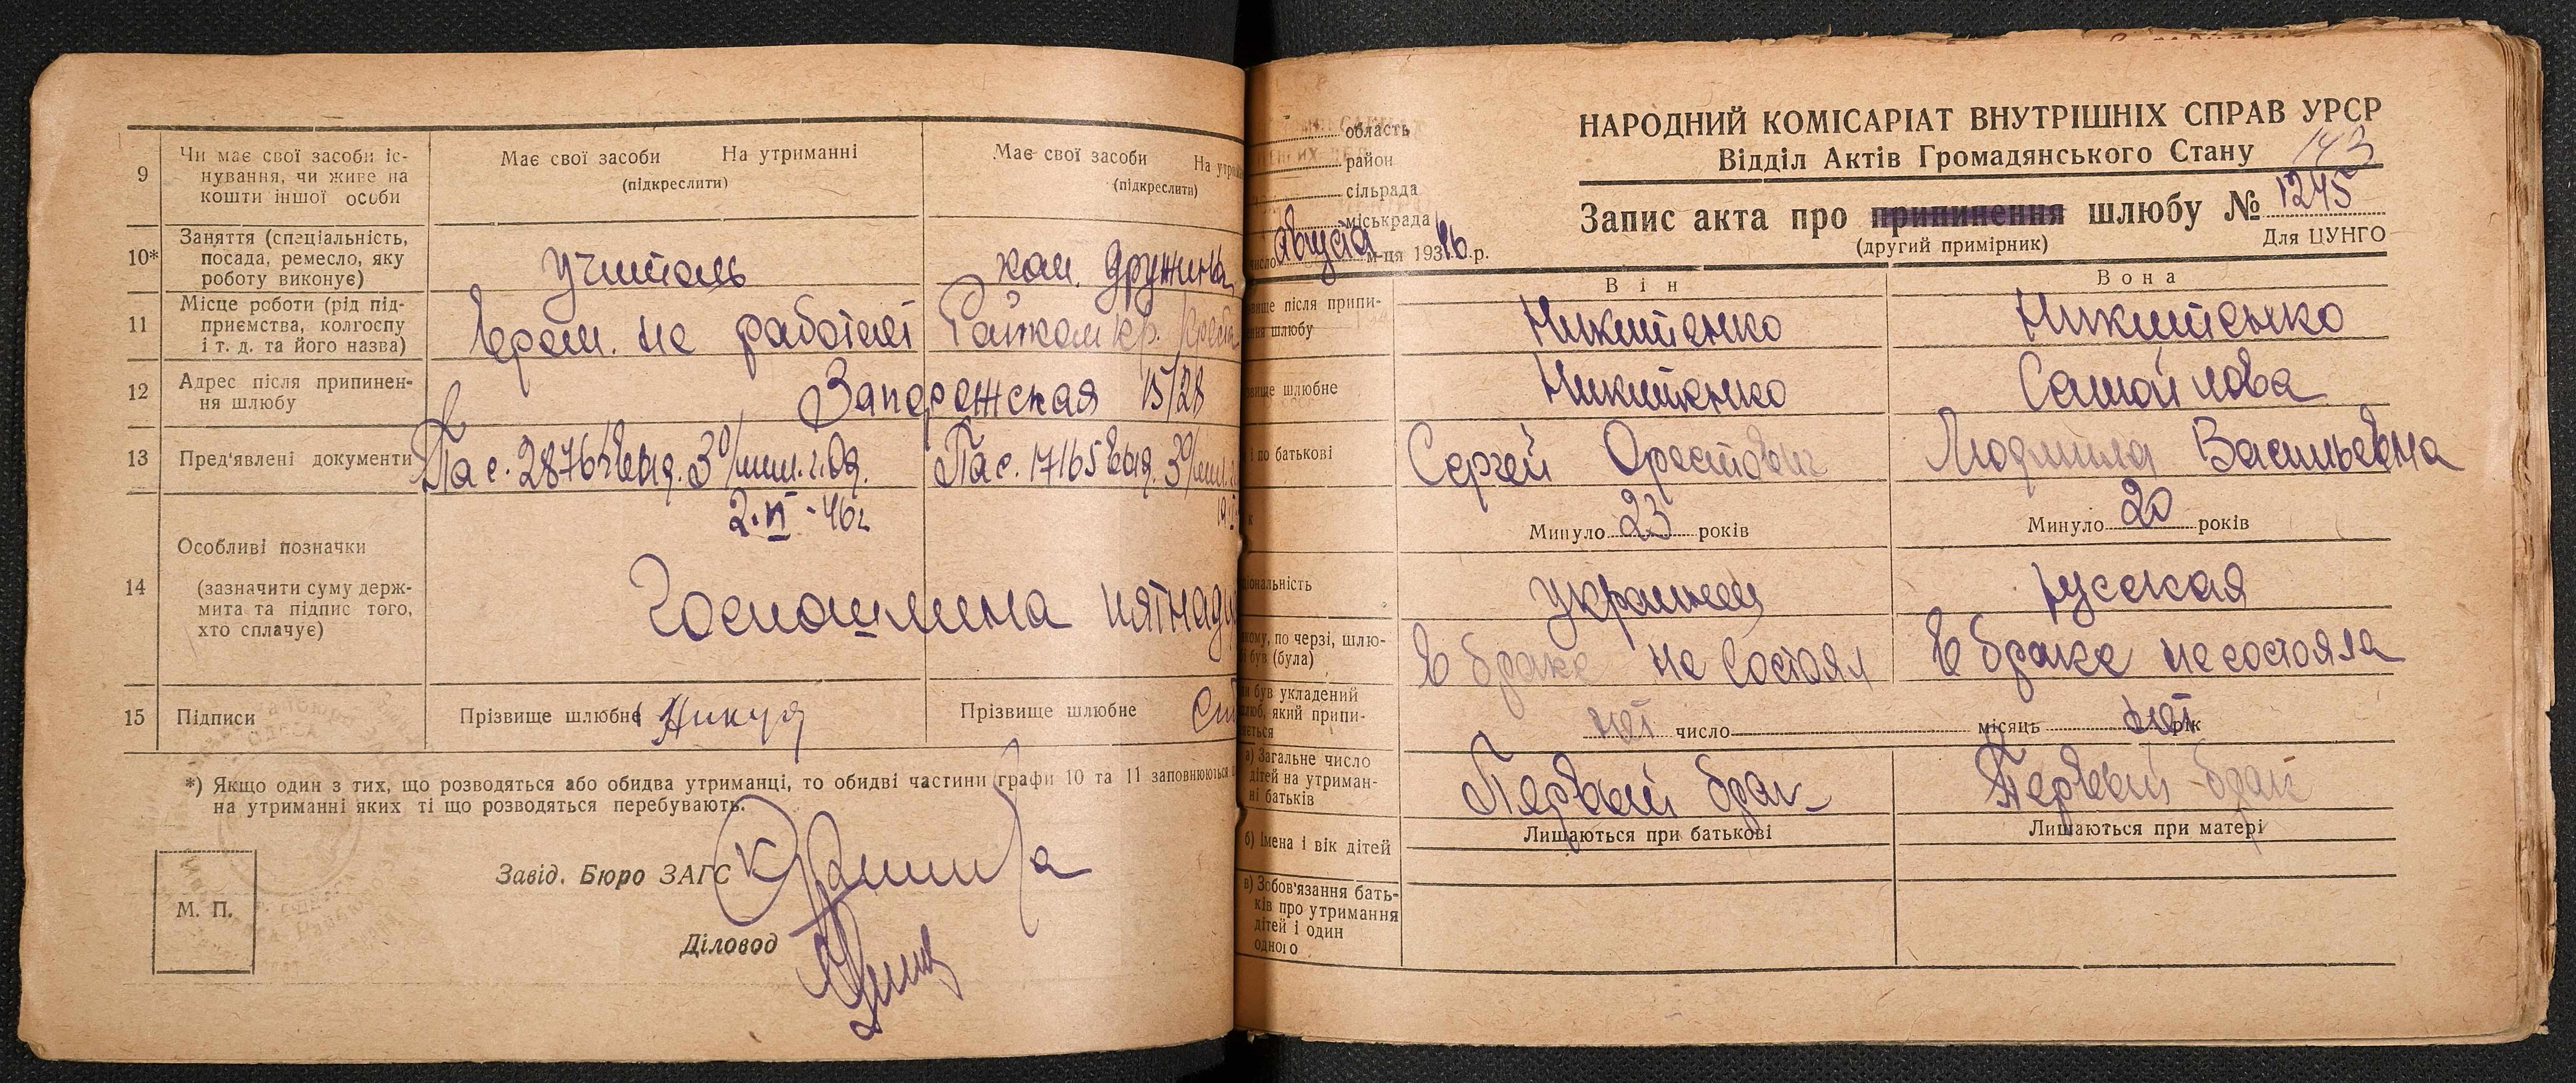 9
Чи має свої засоби іс-
нування, чи живе на
кошти іншої особи
Має свої засоби На утриманні
(підкреслити)
Має свої засоби
(підкреслити)
10*
Заняття (спеціальність,
посада, ремесло, яку
роботу виконує)
учитель
11
Місце роботи (рід під-
приємства, колгоспу
і т. д. та його назва)
врем. не работает
12
Адрес після припинен-
ня шлюбу
Запорожская 15/28
13
Пред'явлені документи
Пас. 28764 выд. 3 о/мил. г. Од.
2.VI-46г
Пас. 17165 выд. 3 о/мил.
14
Особливі позначки
(зазначити суму держ-
мита та підпис того,
хто сплачує)
Госпошлина
15
Підписи
Прізвище шлюбне
Прізвище шлюбне
*) Якщо один з тих, що розводяться або обидва утриманці, то обидві частини графи 10 та 11 заповнюються
на утриманні яких ті що розводяться перебувають.
М. П.
Завід. Бюро ЗАГС
Діловод
область
район
сільрада
міськрада
число августа м-ця 1946 р.
НАРОДНИЙ КОМІСАРІАТ ВНУТРІШНІХ СПРАВ УРСР
Відділ Актів Громадянського Стану
143
Запис акта про припинення шлюбу № 1245
(другий примірник)
Для ЦУНГО
Він
Вона
після припи-
шлюбу
Никитенко
Никитенко
шлюбне
Никитенко
Самойлова
і по батькові
Сергей Орестович
Людмила Васильевна
Минуло 23 років
Минуло 20 років
украинец
русская
по черзі, шлю-
був (була)
В браке не состоял
В браке не состояла
був укладений
який припи-
нет число місяць нет рік
а) Загальне число
дітей на утриман-
ні батьків
Первый брак
Первый брак
Лишаються при батькові
Лишаються при матері
б) Імена і вік дітей
в) Зобов'язання бать-
ків про утримання
дітей і один
одного